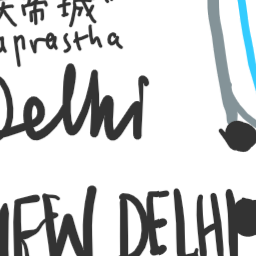 帝城"
aprastha
Delhi
NEW DELHI